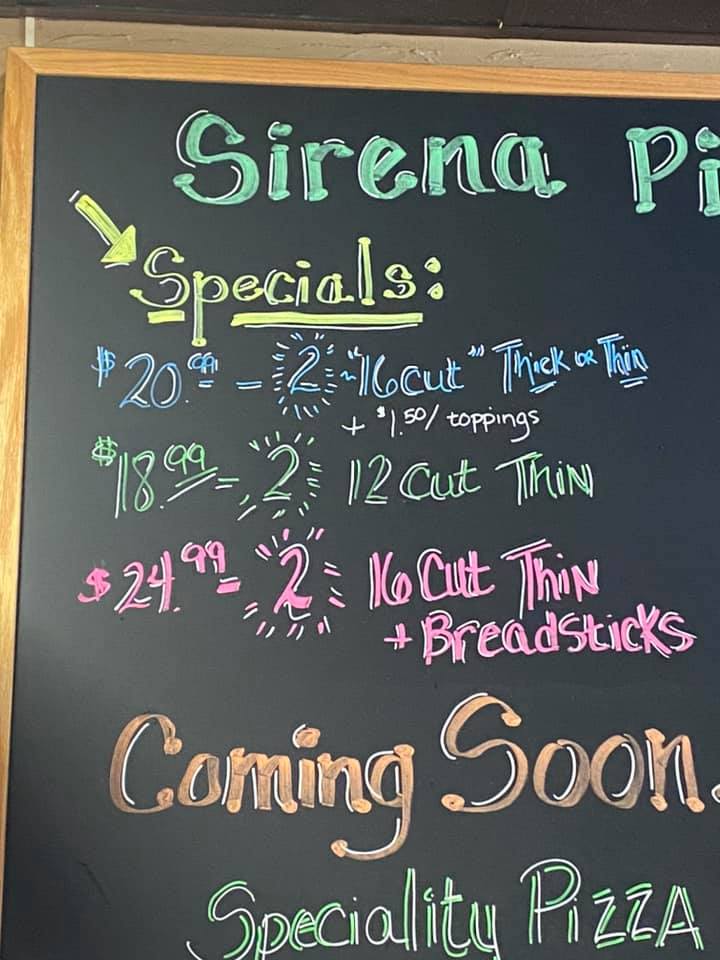 Sirena Pi
Specials:
$20.99 - 2 ~"16 cut" Thick or Thin
+ $1.50/ toppings
$18.99 - 2 12 cut Thin
$24.99 - 2 16 Cut Thin
+ Breadsticks
Coming Soon.
Speciality Pizza